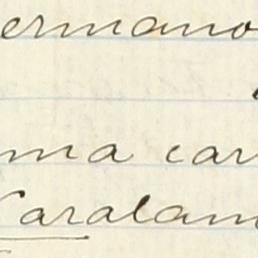 ermano
ma car
Caralam